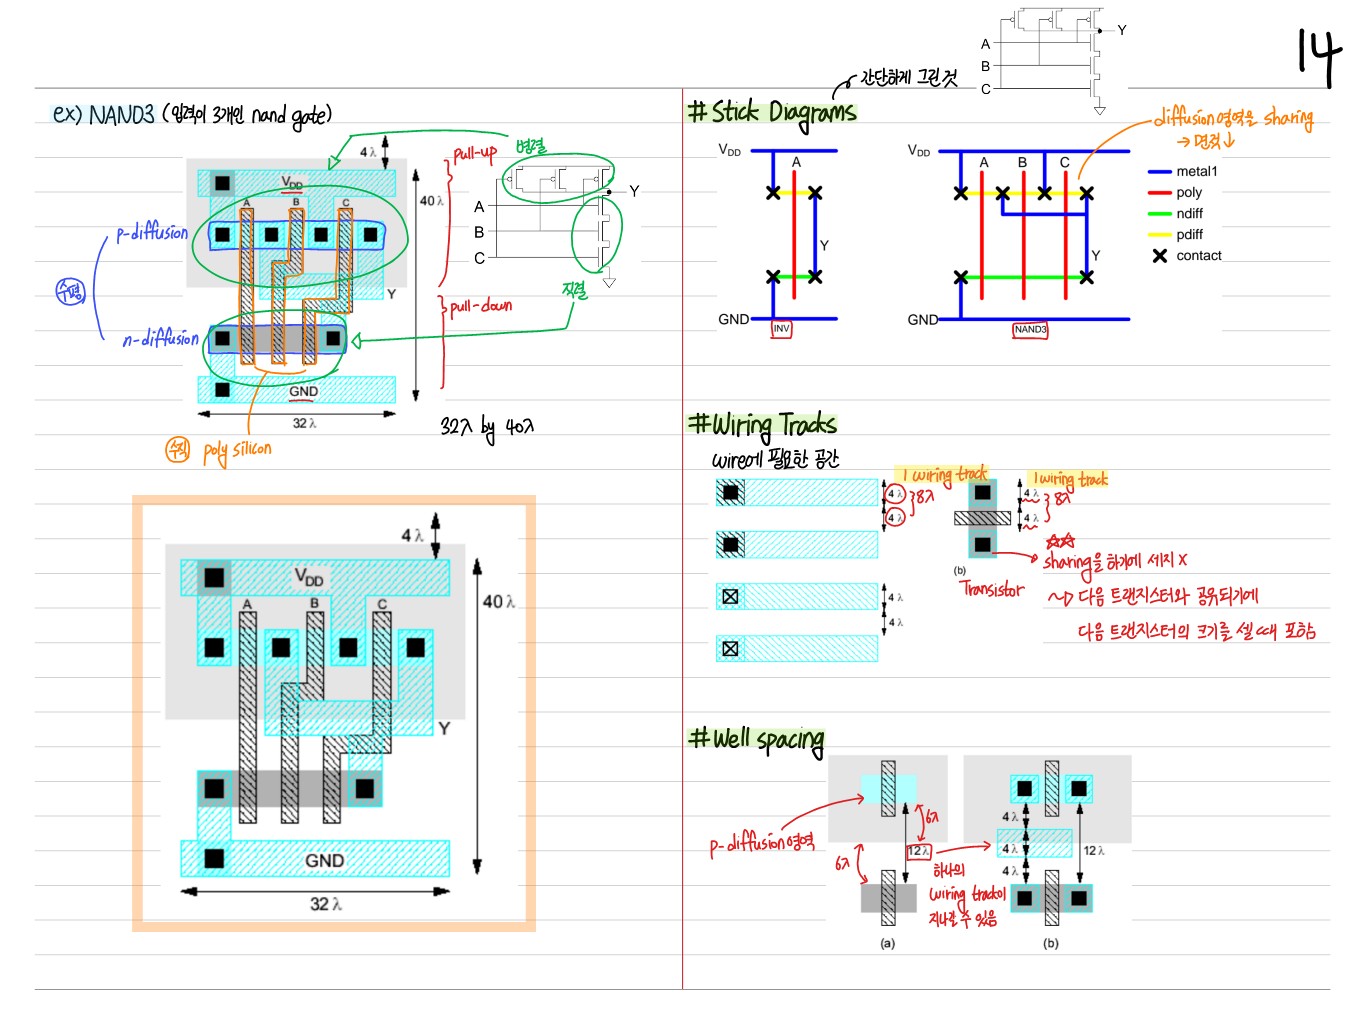 14
ex) NAND3 (입력이 3개인 nand gate)
4 λ
VDD
A
B
C
40 λ
Y
GND
32 λ
p-diffusion
n-diffusion
수평
수직
poly silicon
pull-up
pull-down
병렬
직렬
A
B
C
Y
32λ by 40λ
4 λ
VDD
A
B
C
40 λ
Y
GND
32 λ
# Stick Diagrams
간단하게 그린 것
A
B
C
Y
diffusion영역을 sharing
→ 면적↓
VDD
A
Y
GND
INV
VDD
A
B
C
Y
GND
NAND3
metal1
poly
ndiff
pdiff
contact
# Wiring Tracks
wire에 필요한 공간
1 wiring track
4 λ
4 λ
8λ
4 λ
4 λ
1 wiring track
4 λ
4 λ
8λ
(b)
Transistor
☆☆
sharing을 하기에 세지 X
~> 다음 트랜지스터와 공유되기에
다음 트랜지스터의 크기를 셀 때 포함
# Well spacing
p-diffusion영역
6λ
6λ
12 λ
하나의
wiring track이
지나갈 수 있음
4 λ
4 λ
4 λ
12 λ
(a)
(b)